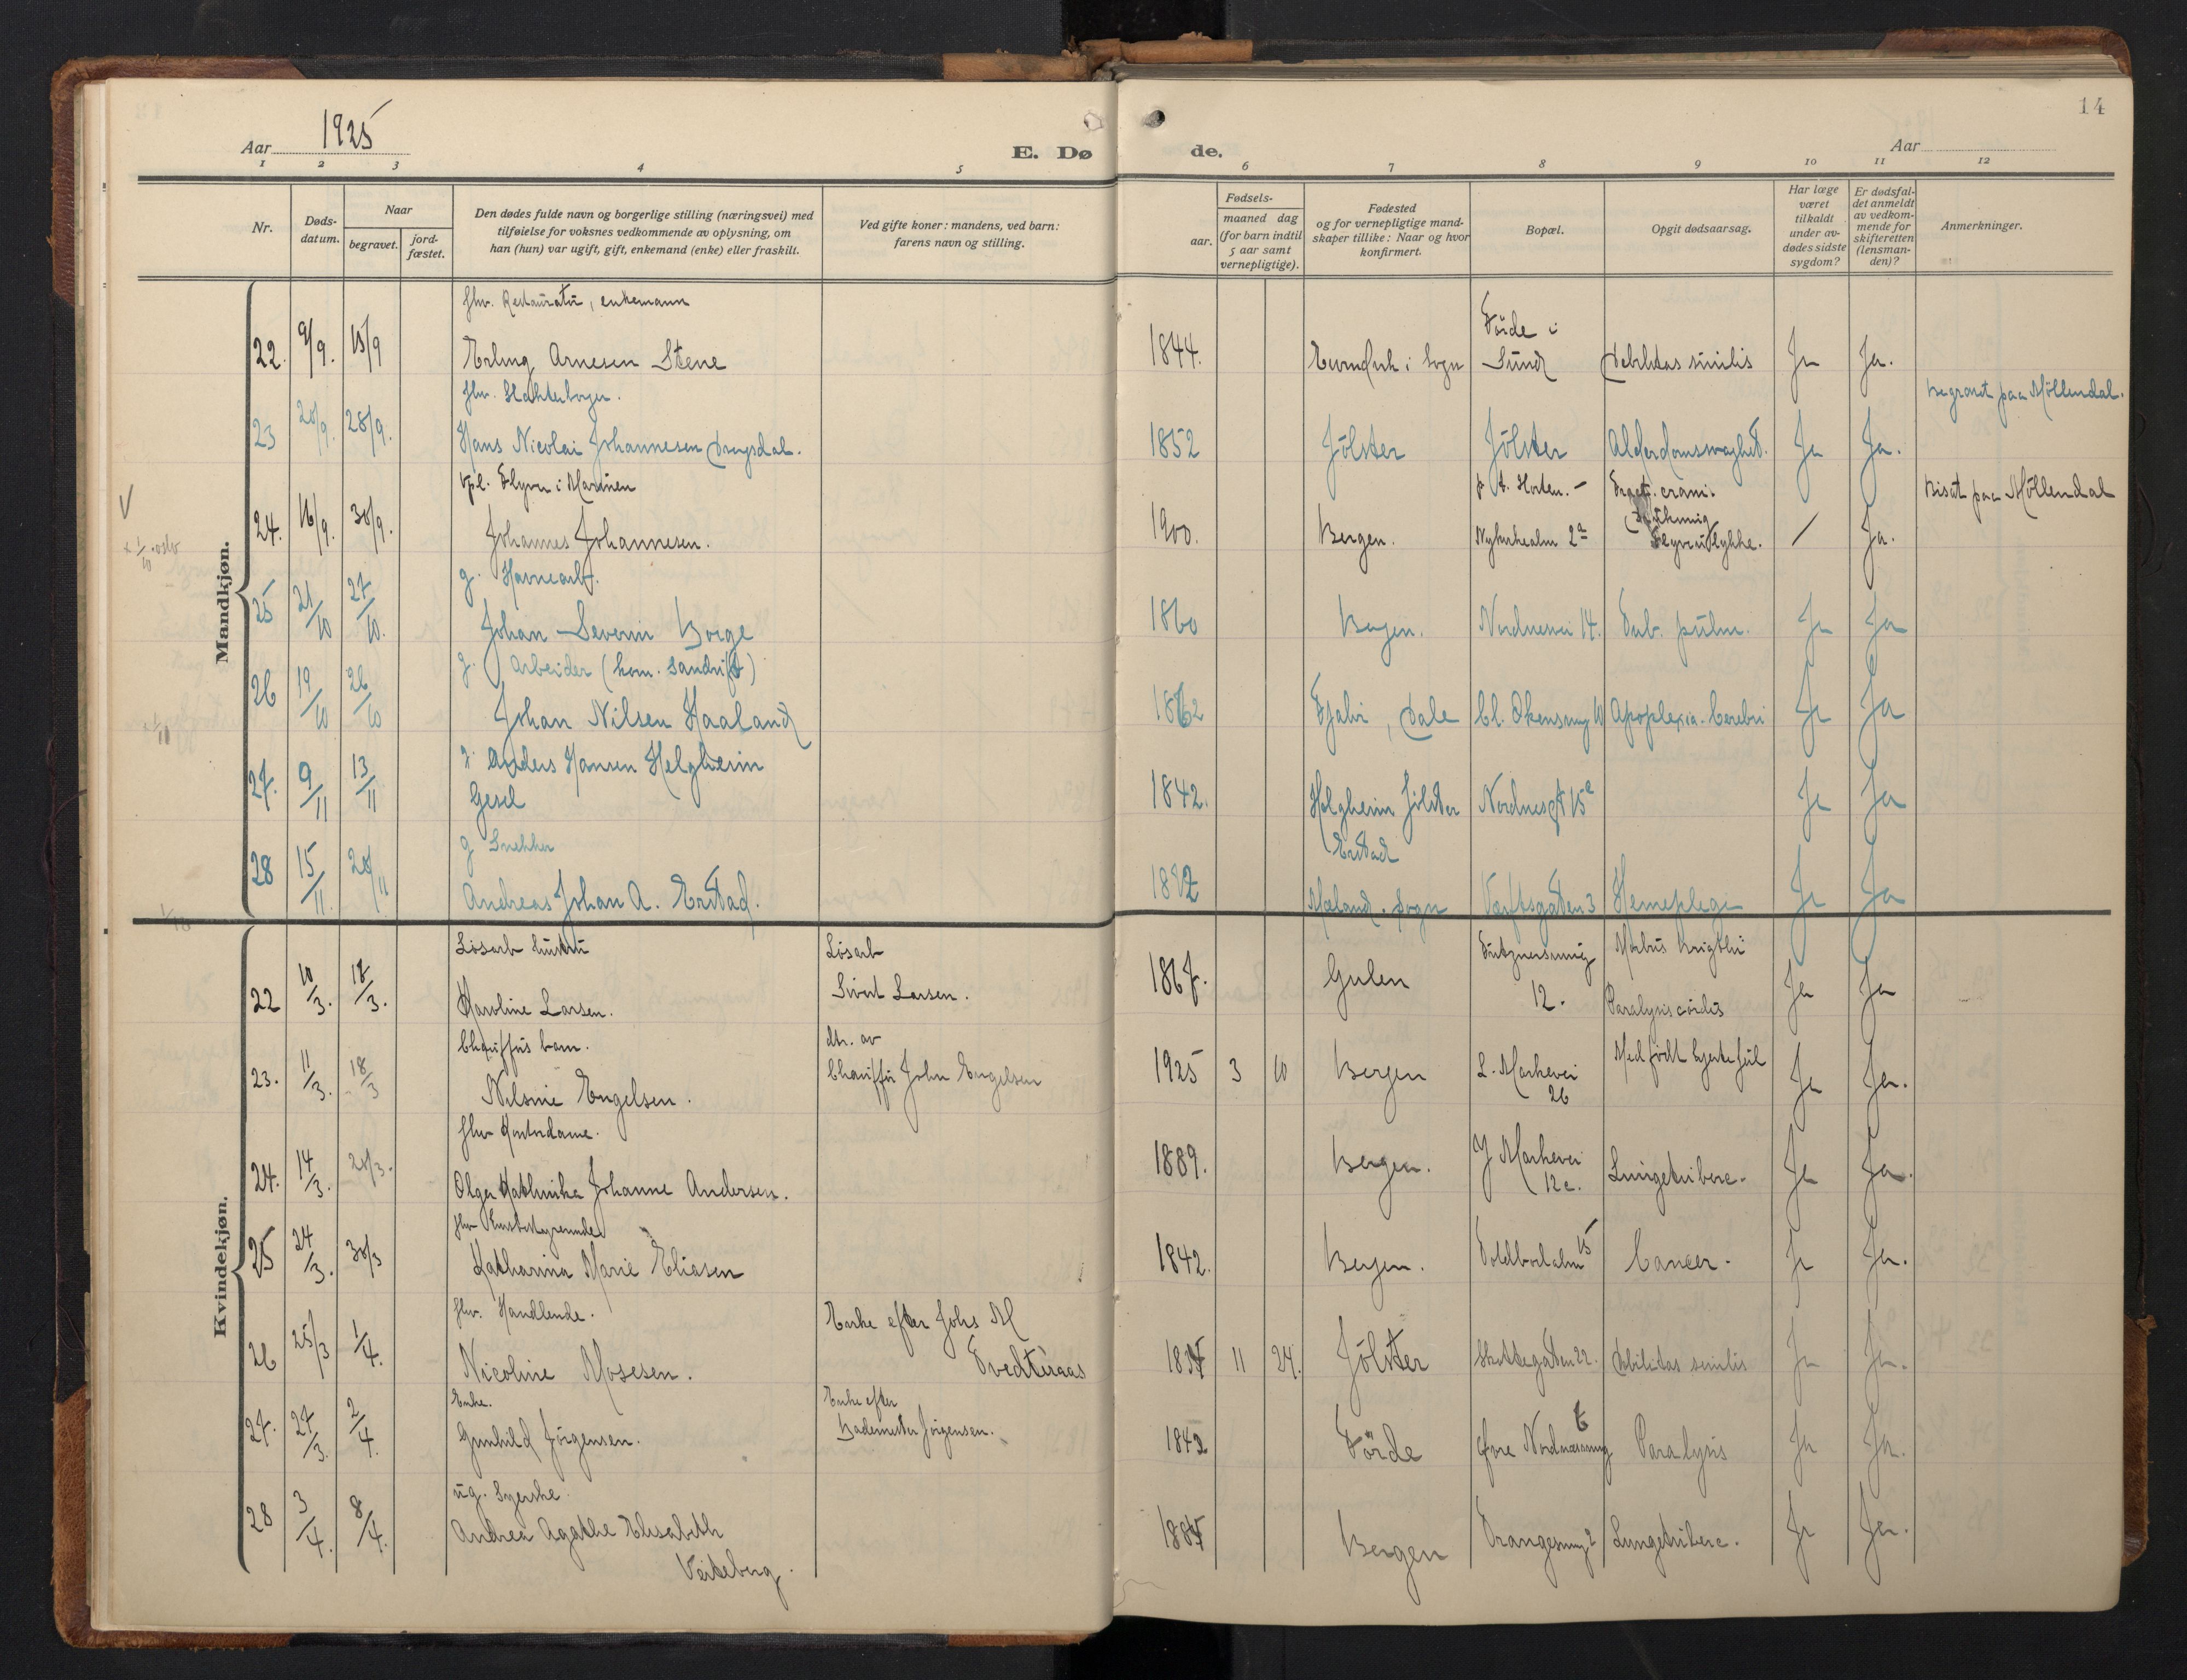 Aar 1925
E. Dø
de.
Aar
14
1 2 3 4 5 6 7 8 9 10 11 12
Nr.
Døds-
datum.
Naar
begravet.
jord-
fæstet.
Den dødes fulde navn og borgerlige stilling (næringsvei) med
tilføielse for voksnes vedkommende av oplysning, om
han (hun) var ugift, gift, enkemand (enke) eller fraskilt.
Ved gifte koner: mandens, ved barn:
farens navn og stilling.
Fødsels-
aar.
maaned dag
(for barn indtil
5 aar samt
vernepligtige).
Fødested
og for vernepligtige mand-
skaper tillike: Naar og hvor
konfirmert.
Bopæl.
Opgit dødsaarsag.
Har læge
været
tilkaldt
under av-
dødes sidste
sygdom?
Er dødsfal-
det anmeldt
av vedkom-
mende for
skifteretten
(lensman-
den)?
Anmerkninger.
Mandkjøn.
fhv. Restauratør, enkemann
22. 9/9. 15/9 Erling Arnesen Stene 1844. i Sogn Førde i
Sund Debilitas senilis Ja Ja.
Begravet paa Møllendal.
fhv. Slakterborger.
23 20/9. 28/9. Hans Nicolai Johannesen 1852 Jölster Jölster Alderdomssvaghet. Ja Ja.
Bisat paa Møllendal
Vpl. Flyver i Marinen
24. 16/9. 30/9. Johannes Johannesen. 1900. Bergen. p. t. Horten. -
Nykirkealm 2a Fract. crani.
Flyveulykke. / Ja.
g. Havnearb.
25 21/10 27/10. Johan Severin Borge 1860 Bergen. Nordnesvei 14. Tub. pulm. Ja Ja
g. Arbeider (kom. Sandrift)
26 19/10 26/10 Johan Nilsen Haaland 1862 Fjaler, Dale 10 Apoplexia Cerebri Ja Ja
g. Anders Hansen Helgheim
27. 9/11 13/11 Gesel 1842. Helgheim Jölster Nordnesgt 15e Ja Ja
g Snekker
28 15/11. 20/11 Andreas Johan A. Erstad. Erstad
Sogn Verftsgaten 3 Hemeplegi Ja Ja
Kvindekjøn.
Løsarb hustru
Løsarb
22 10/3. 18/3. Karoline Larsen. Sivert Larsen. 1867. Gulen 12. Morbus Brigthii
Paralysis cordis Ja Ja
Chaufførs barn.
dtr. av
23. 11/3. 18/3 Nilsine Engelsen. Chauffør John Engelsen 1925 3 10 Bergen L. Markevei
26 Medfödt hjertefeil Ja Ja.
fhv
24. 14/3. 20/3. Olga Johanne Andersen. 1889. Bergen. Y Markevei
12c. Lungetuberc. Ja Ja.
fhv
25 24/3. 30/3 Katharina Marie Eliasen 1842. Bergen. Toldbodalm 15 Cancer. Ja Ja.
fhv. Handlende.
Enke efter Johs M
26 25/3 1/4. Nicoline Mosesen. Tvedteraas 11 24. Jölster Skottegaten 22. Debilitas senilis Ja Ja.
Enke.
Enke efter
27. 27/3. 2/4. Gunhild Jörgensen. Bademester Jörgensen. 1842 Förde Øvre Nordnessmug 6 Paralysis Ja Ja.
ug. Syerske.
28 3/4. 8/4. Andrea Agathe Elisabeth
Veiteberg. Bergen Trangesmug 2 Lungetuberc. Ja Ja.